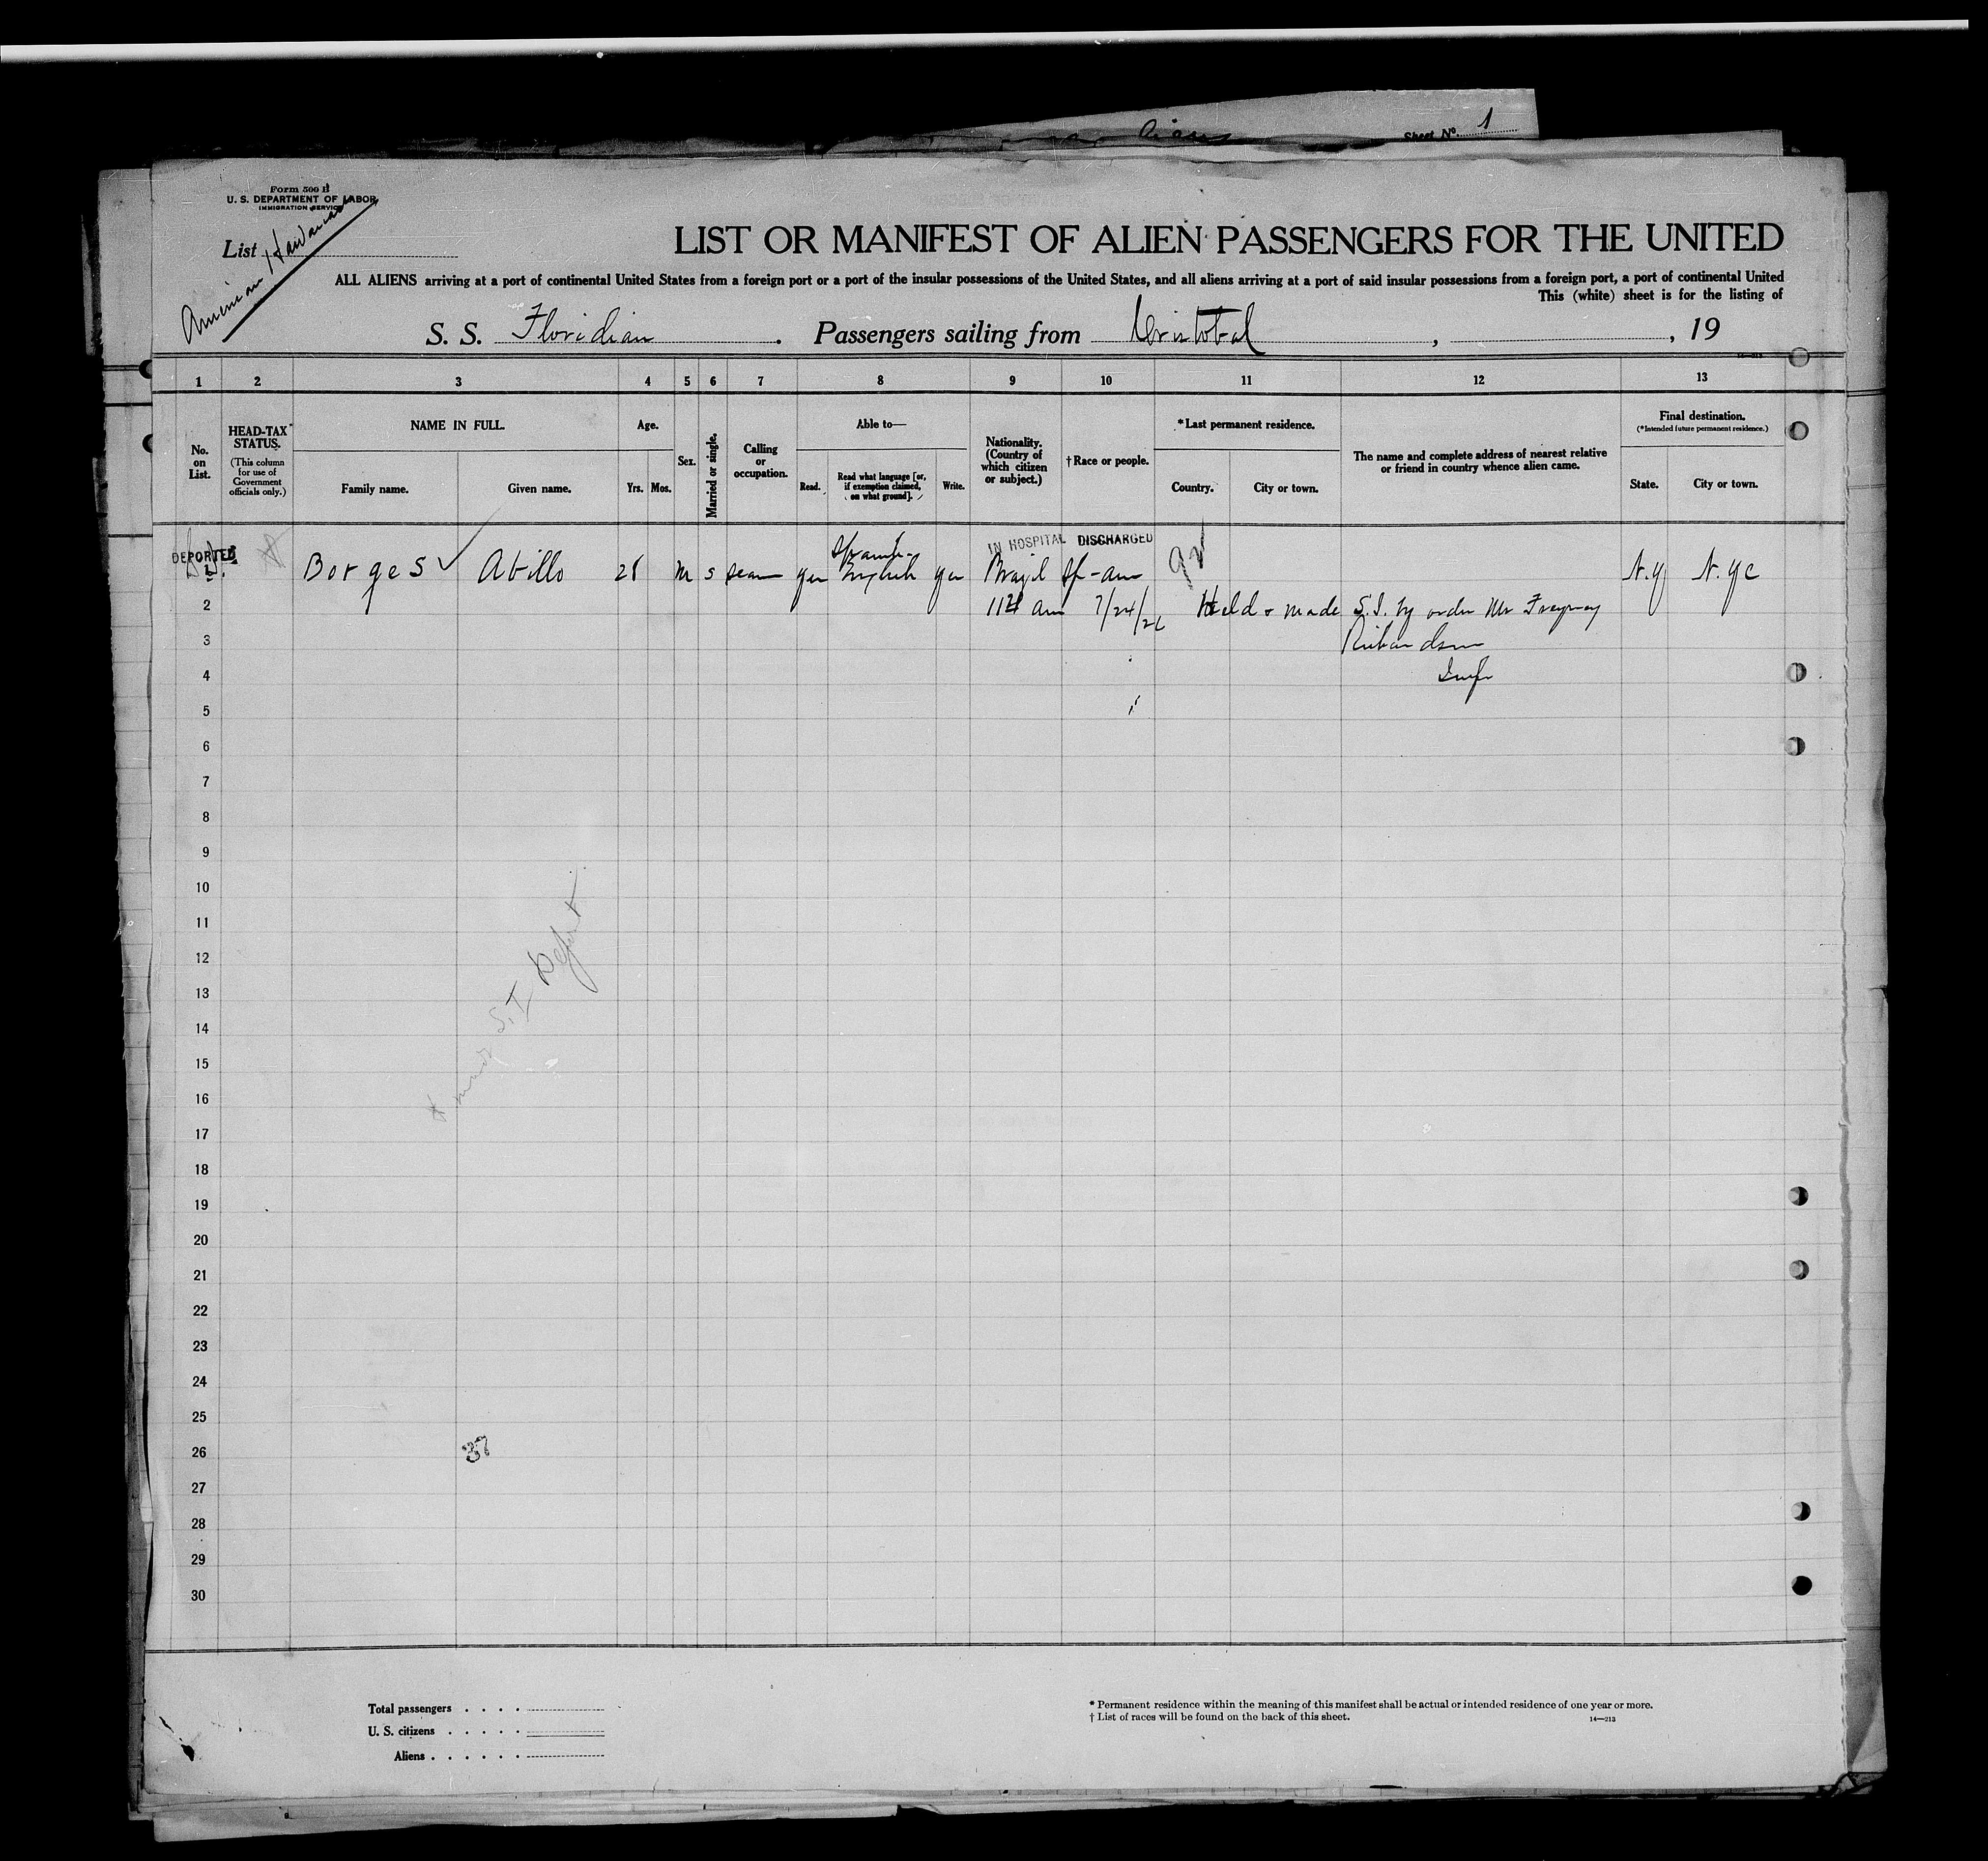 Sheet No. 1
Form 500 B
U. S. DEPARTMENT OF LABOR
IMMIGRATION SERVICE
List
American Hawaiian
LIST OR MANIFEST OF ALIEN PASSENGERS FOR THE UNITED
ALL ALIENS arriving at a port of continental United States from a foreign port or a port of the insular possessions of the United States, and all aliens arriving at a port of said insular possessions from a foreign port, a port of continental United
This (white) sheet is for the listing of
S. S. Floridian . Passengers sailing from Cristobal , , 19
14—213
1 2 3 4 5 6 7 8 9 10 11 12 13
No. on List.
HEAD-TAX STATUS.
(This column for use of Government officials only.)
NAME IN FULL.
Family name. Given name.
Age.
Yrs. Mos.
Sex.
Married or single.
Calling or occupation.
Able to—
Read. Read what language [or, if exemption claimed, on what ground]. Write.
Nationality. (Country of which citizen or subject.)
†Race or people.
*Last permanent residence.
Country. City or town.
The name and complete address of nearest relative or friend in country whence alien came.
Final destination.
(*Intended future permanent residence.)
State. City or town.
IN HOSPITAL DISCHARGED
DEPORTED
Spanish-
1 Borges Abillo 28 m s seaman yes English yes Brazil Sp-am N.Y N.Y C
2 am 7/24/26 Held & made S.I. by order Mr
3 Richardson
4 Insp
5
6
7
8
9
10
11
12
13
14
15
16
17
18
19
20
21
22
23
24
25
26
27
28
29
30
S.I.
37
Total passengers
U. S. citizens
Aliens
* Permanent residence within the meaning of this manifest shall be actual or intended residence of one year or more.
† List of races will be found on the back of this sheet.
14—213